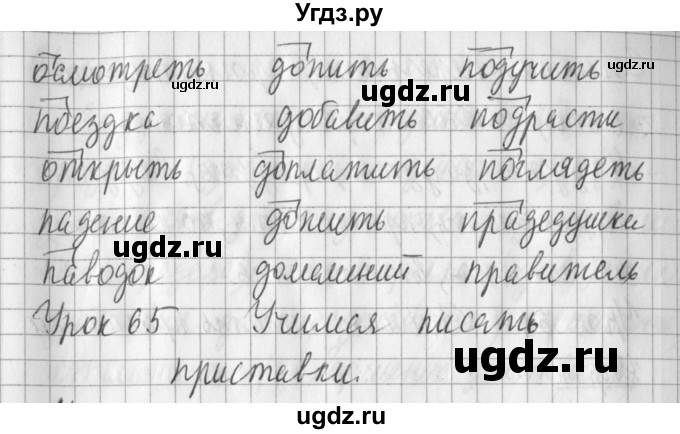 Угдз.ру
осмотреть допить подучить
ugdz.ru
поездка добавить подрасти
открыть доплатить поглядеть
падение дожить прадедушка
ugdz.ru
паводок домашний правитель
Урок 65 Учимся писать
ugdz.ru
приставки.
ugdz.ru
ugdz.ru